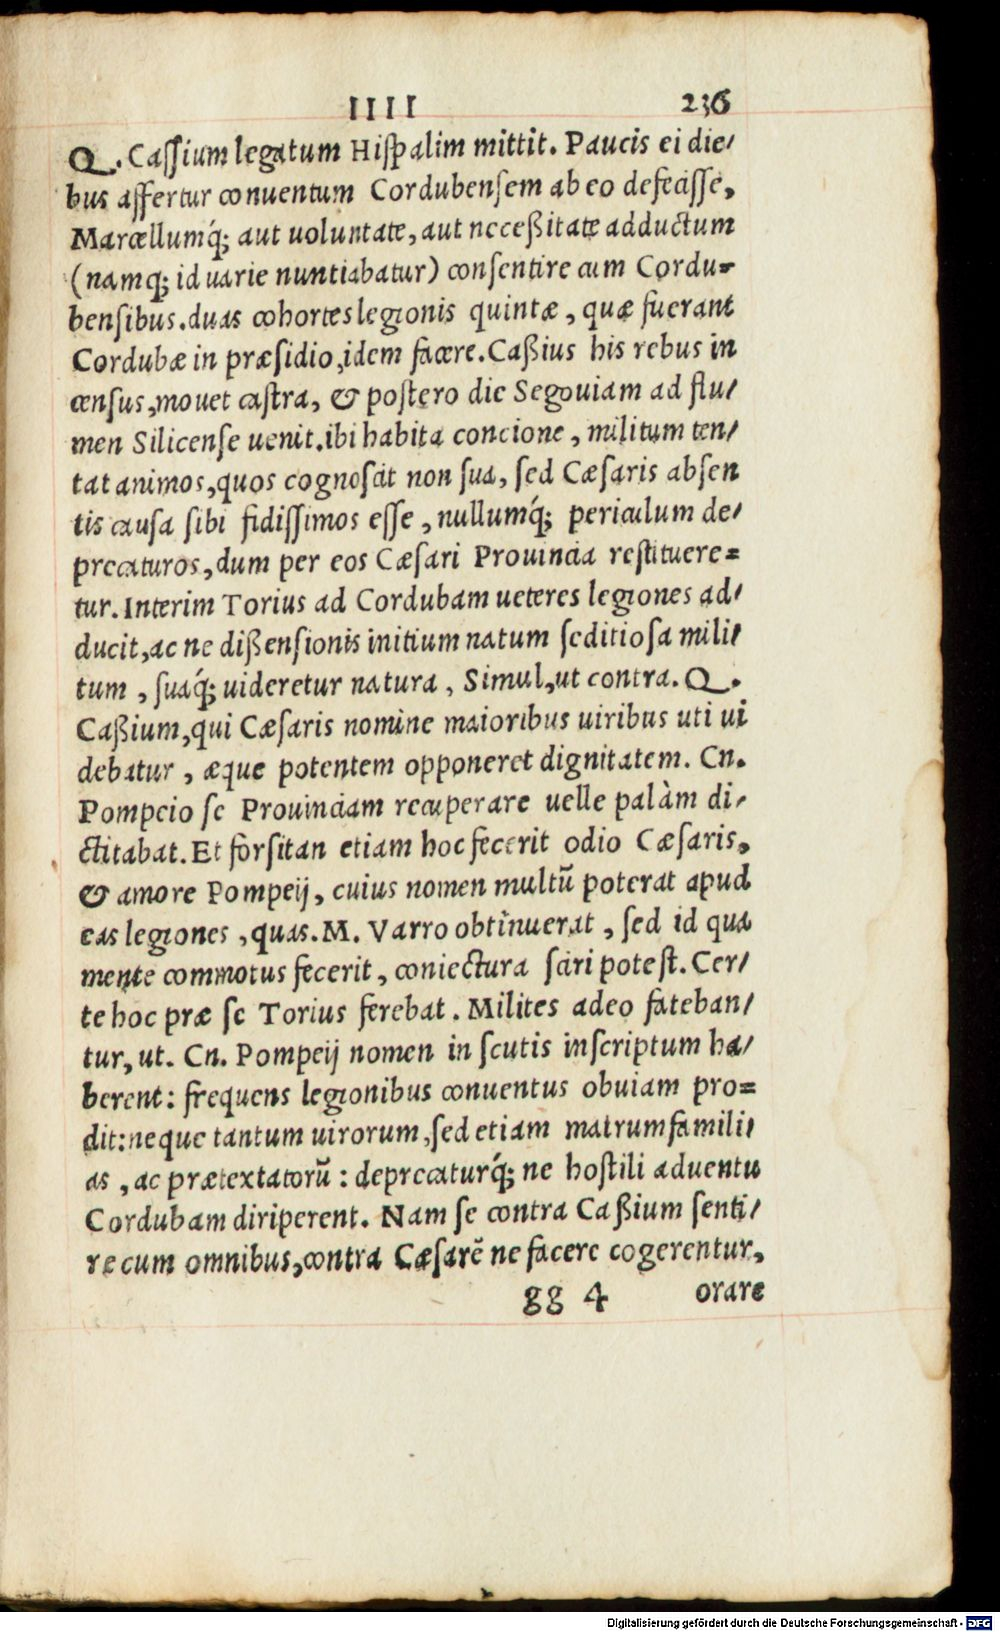 IIII 236
Q. Caſſium legatum Hiſpalim mittit. Paucis ei die/
bus affertur conuentum Cordubenſem ab eo defeciſſe,
Marcellumq́; aut uoluntate, aut neceßitate adductum
(namq; id uarie nuntiabatur) conſentire cum Cordu=
benſibus. duas cohortes legionis quintæ, quæ fuerant
Cordubæ in præſidio, idem facere. Caßius his rebus in
cenſus, mouet caſtra, & poſtero die Segouiam ad flu/
men Silicenſe uenit. ibi habita concione, militum ten/
tat animos, quos cognoſcit non ſua, ſed Cæſaris abſen
tis cauſa ſibi fidiſſimos eſſe, nullumq́; periculum de/
precaturos, dum per eos Cæſari Prouincia reſtituere=
tur. Interim Torius ad Cordubam ueteres legiones ad/
ducit, ac ne dißenſionis initium natum ſeditioſa mili/
tum, ſuaq́; uideretur natura, Simul, ut contra. Q.
Caßium, qui Cæſaris nomine maioribus uiribus uti ui
debatur, æque potentem opponeret dignitatem. Cn.
Pompeio ſe Prouinciam recuperare uelle palàm di/
ctitabat. Et forſitan etiam hoc fecerit odio Cæſaris,
& amore Pompeij, cuius nomen multū poterat apud
eas legiones, quas. M. Varro obtinuerat, ſed id qua
mente commotus fecerit, coniectura ſciri poteſt. Cer/
te hoc præ ſe Torius ferebat. Milites adeo fateban/
tur, ut. Cn. Pompeij nomen in ſcutis inſcriptum ha/
berent: frequens legionibus conuentus obuiam pro=
dit: neque tantum uirorum, ſed etiam matrumfamili/
as, ac prætextatorū: deprecaturq́; ne hoſtili aduentu
Cordubam diriperent. Nam ſe contra Caßium ſenti/
re cum omnibus, contra Cæſarē ne facere cogerentur,
gg 4 orare
Digitalisierung gefördert durch die Deutsche Forschungsgemeinschaft - DFG